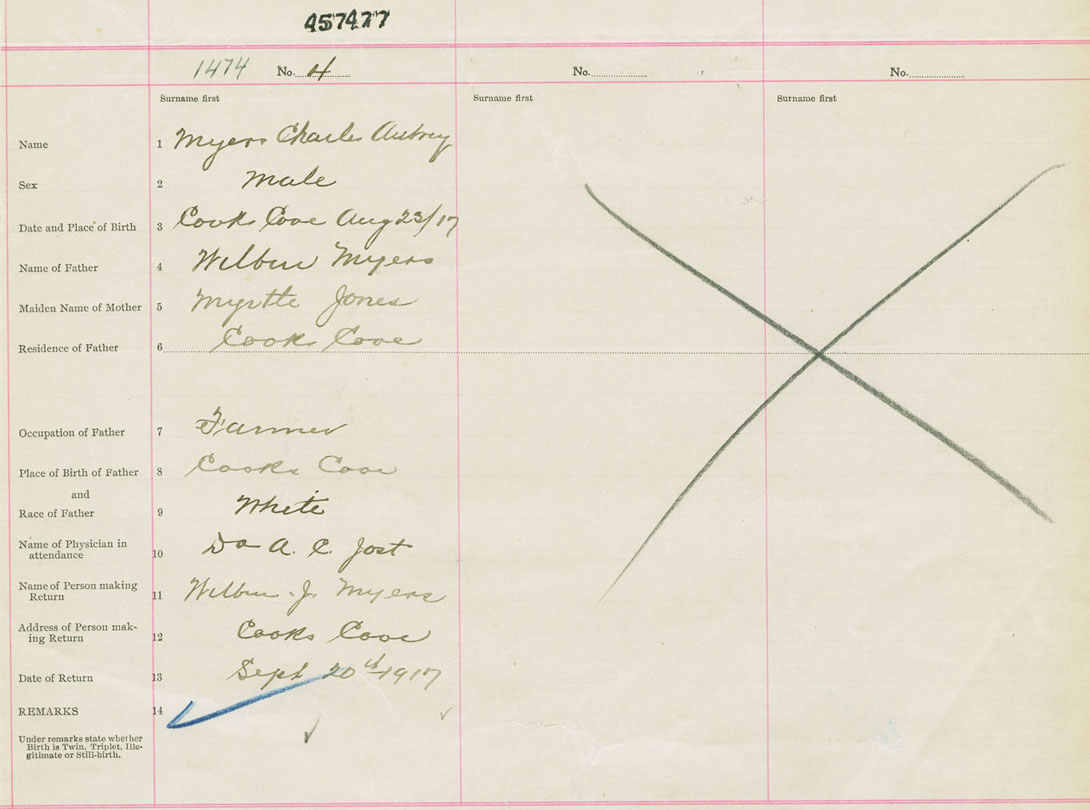 457477
1474 No. 4 No. No.
Surname first Surname first Surname first
Name 1 Myers Charles Aubrey
Sex 2 Male
Date and Place of Birth 3 Cooks Cove Aug 23/17
Name of Father 4 Wilbur Myers
Maiden Name of Mother 5 Myrtle Jones
Residence of Father 6 Cooks Cove
Occupation of Father 7 Farmer
Place of Birth of Father 8 Cooks Cove
and
Race of Father 9 White
Name of Physician in
attendance 10 Dr A. C. Jost
Name of Person making
Return 11 Wilbur J. Myers
Address of Person mak-
ing Return 12 Cooks Cove
Date of Return 13 Sept 20th 1917
REMARKS 14
Under remarks state whether
Birth is Twin, Triplet, Ille-
gitimate or Still-birth.